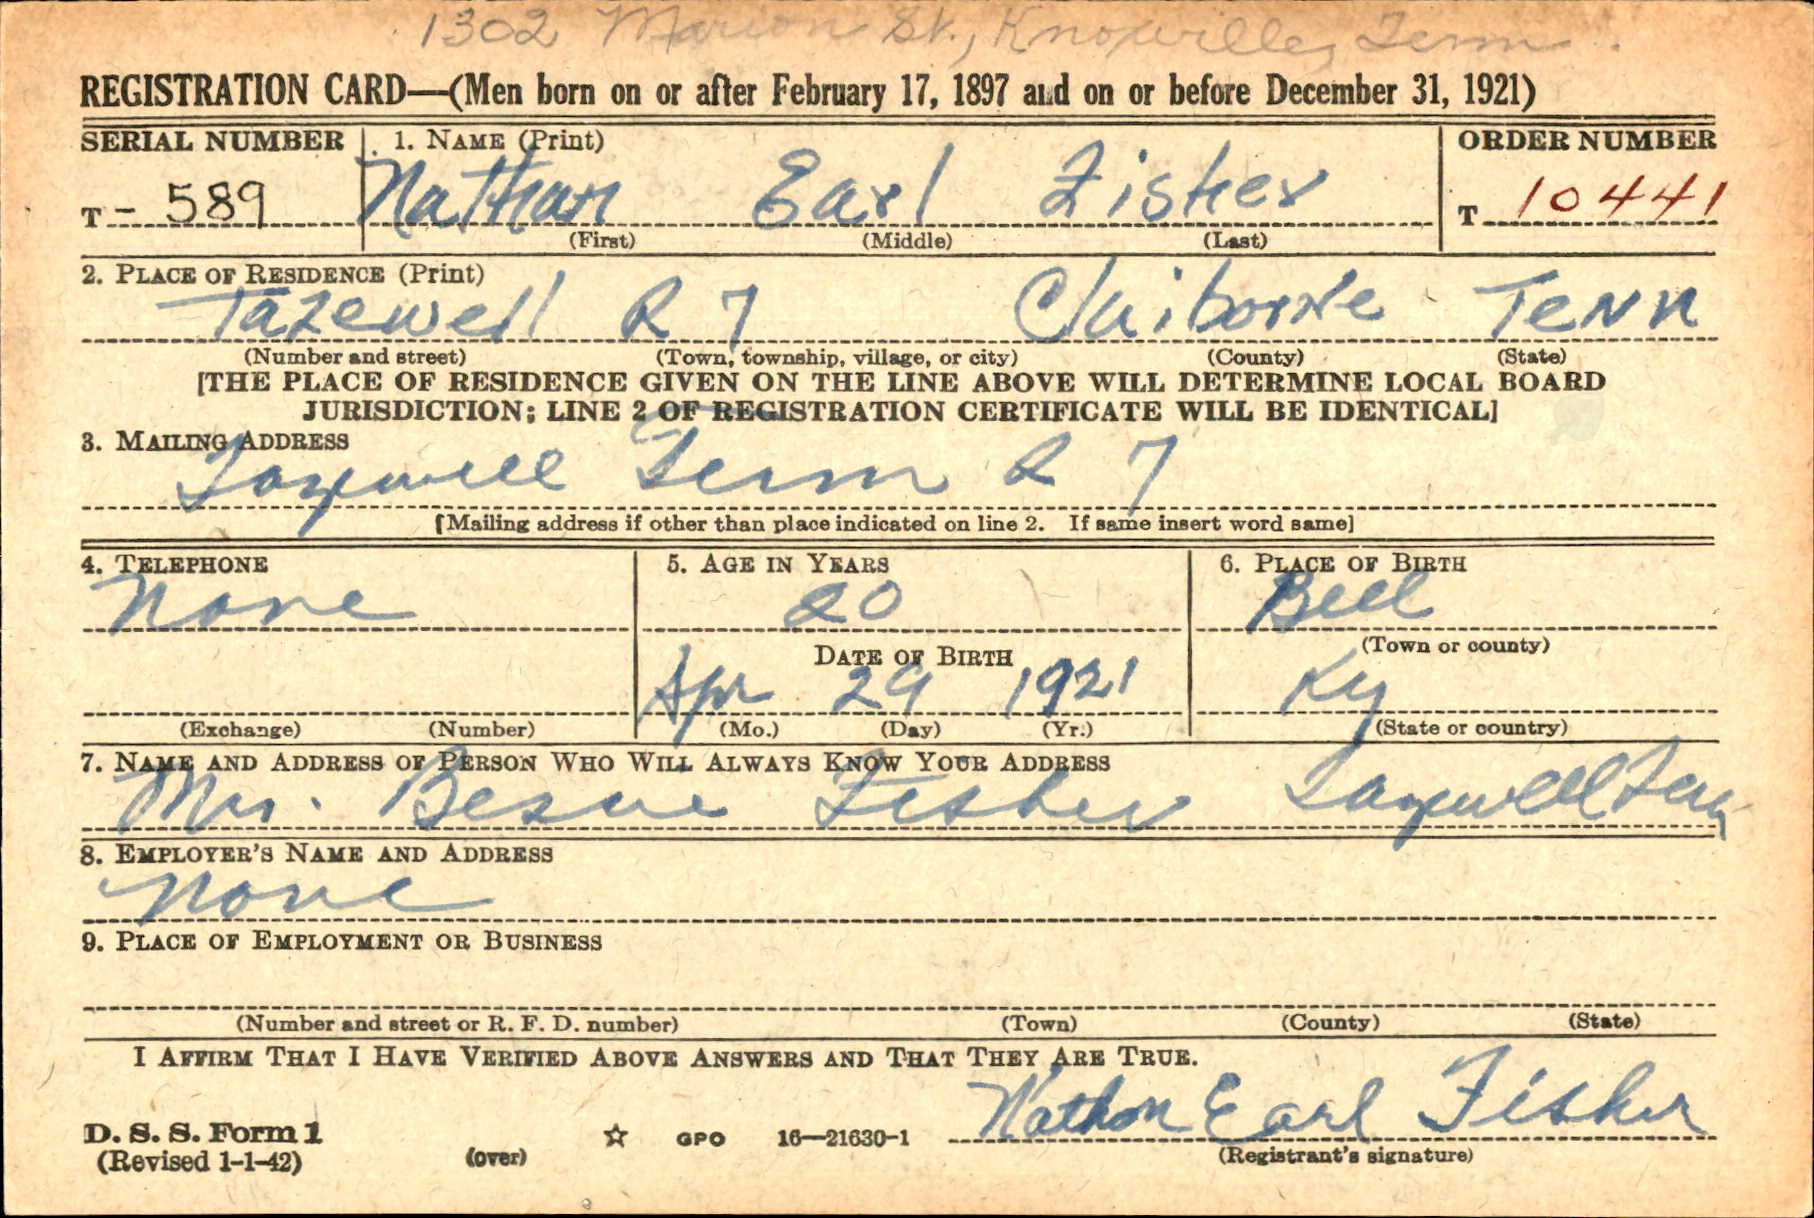 1302 Marion St., Knoxville, Tenn.
REGISTRATION CARD—(Men born on or after February 17, 1897 and on or before December 31, 1921)
SERIAL NUMBER 1. NAME (Print) ORDER NUMBER
T - 589 Nathan Earl Fisher T 10441
(First) (Middle) (Last)
2. PLACE OF RESIDENCE (Print)
Tazewell R 7 Claiborne Tenn
(Number and street) (Town, township, village, or city) (County) (State)
[THE PLACE OF RESIDENCE GIVEN ON THE LINE ABOVE WILL DETERMINE LOCAL BOARD
JURISDICTION; LINE 2 OF REGISTRATION CERTIFICATE WILL BE IDENTICAL]
3. MAILING ADDRESS
Tazewell Tenn R 7
[Mailing address if other than place indicated on line 2. If same insert word same]
4. TELEPHONE 5. AGE IN YEARS 6. PLACE OF BIRTH
None 20 Bell
(Town or county)
DATE OF BIRTH
Apr 29 1921 Ky
(Exchange) (Number) (Mo.) (Day) (Yr.) (State or country)
7. NAME AND ADDRESS OF PERSON WHO WILL ALWAYS KNOW YOUR ADDRESS
Mrs. Fisher Tazwell Tenn
8. EMPLOYER'S NAME AND ADDRESS
None
9. PLACE OF EMPLOYMENT OR BUSINESS
(Number and street or R. F. D. number) (Town) (County) (State)
I AFFIRM THAT I HAVE VERIFIED ABOVE ANSWERS AND THAT THEY ARE TRUE.
Nathan Earl Fisher
D. S. S. Form 1 (over) ☆ GPO 16—21630-1 (Registrant's signature)
(Revised 1-1-42)